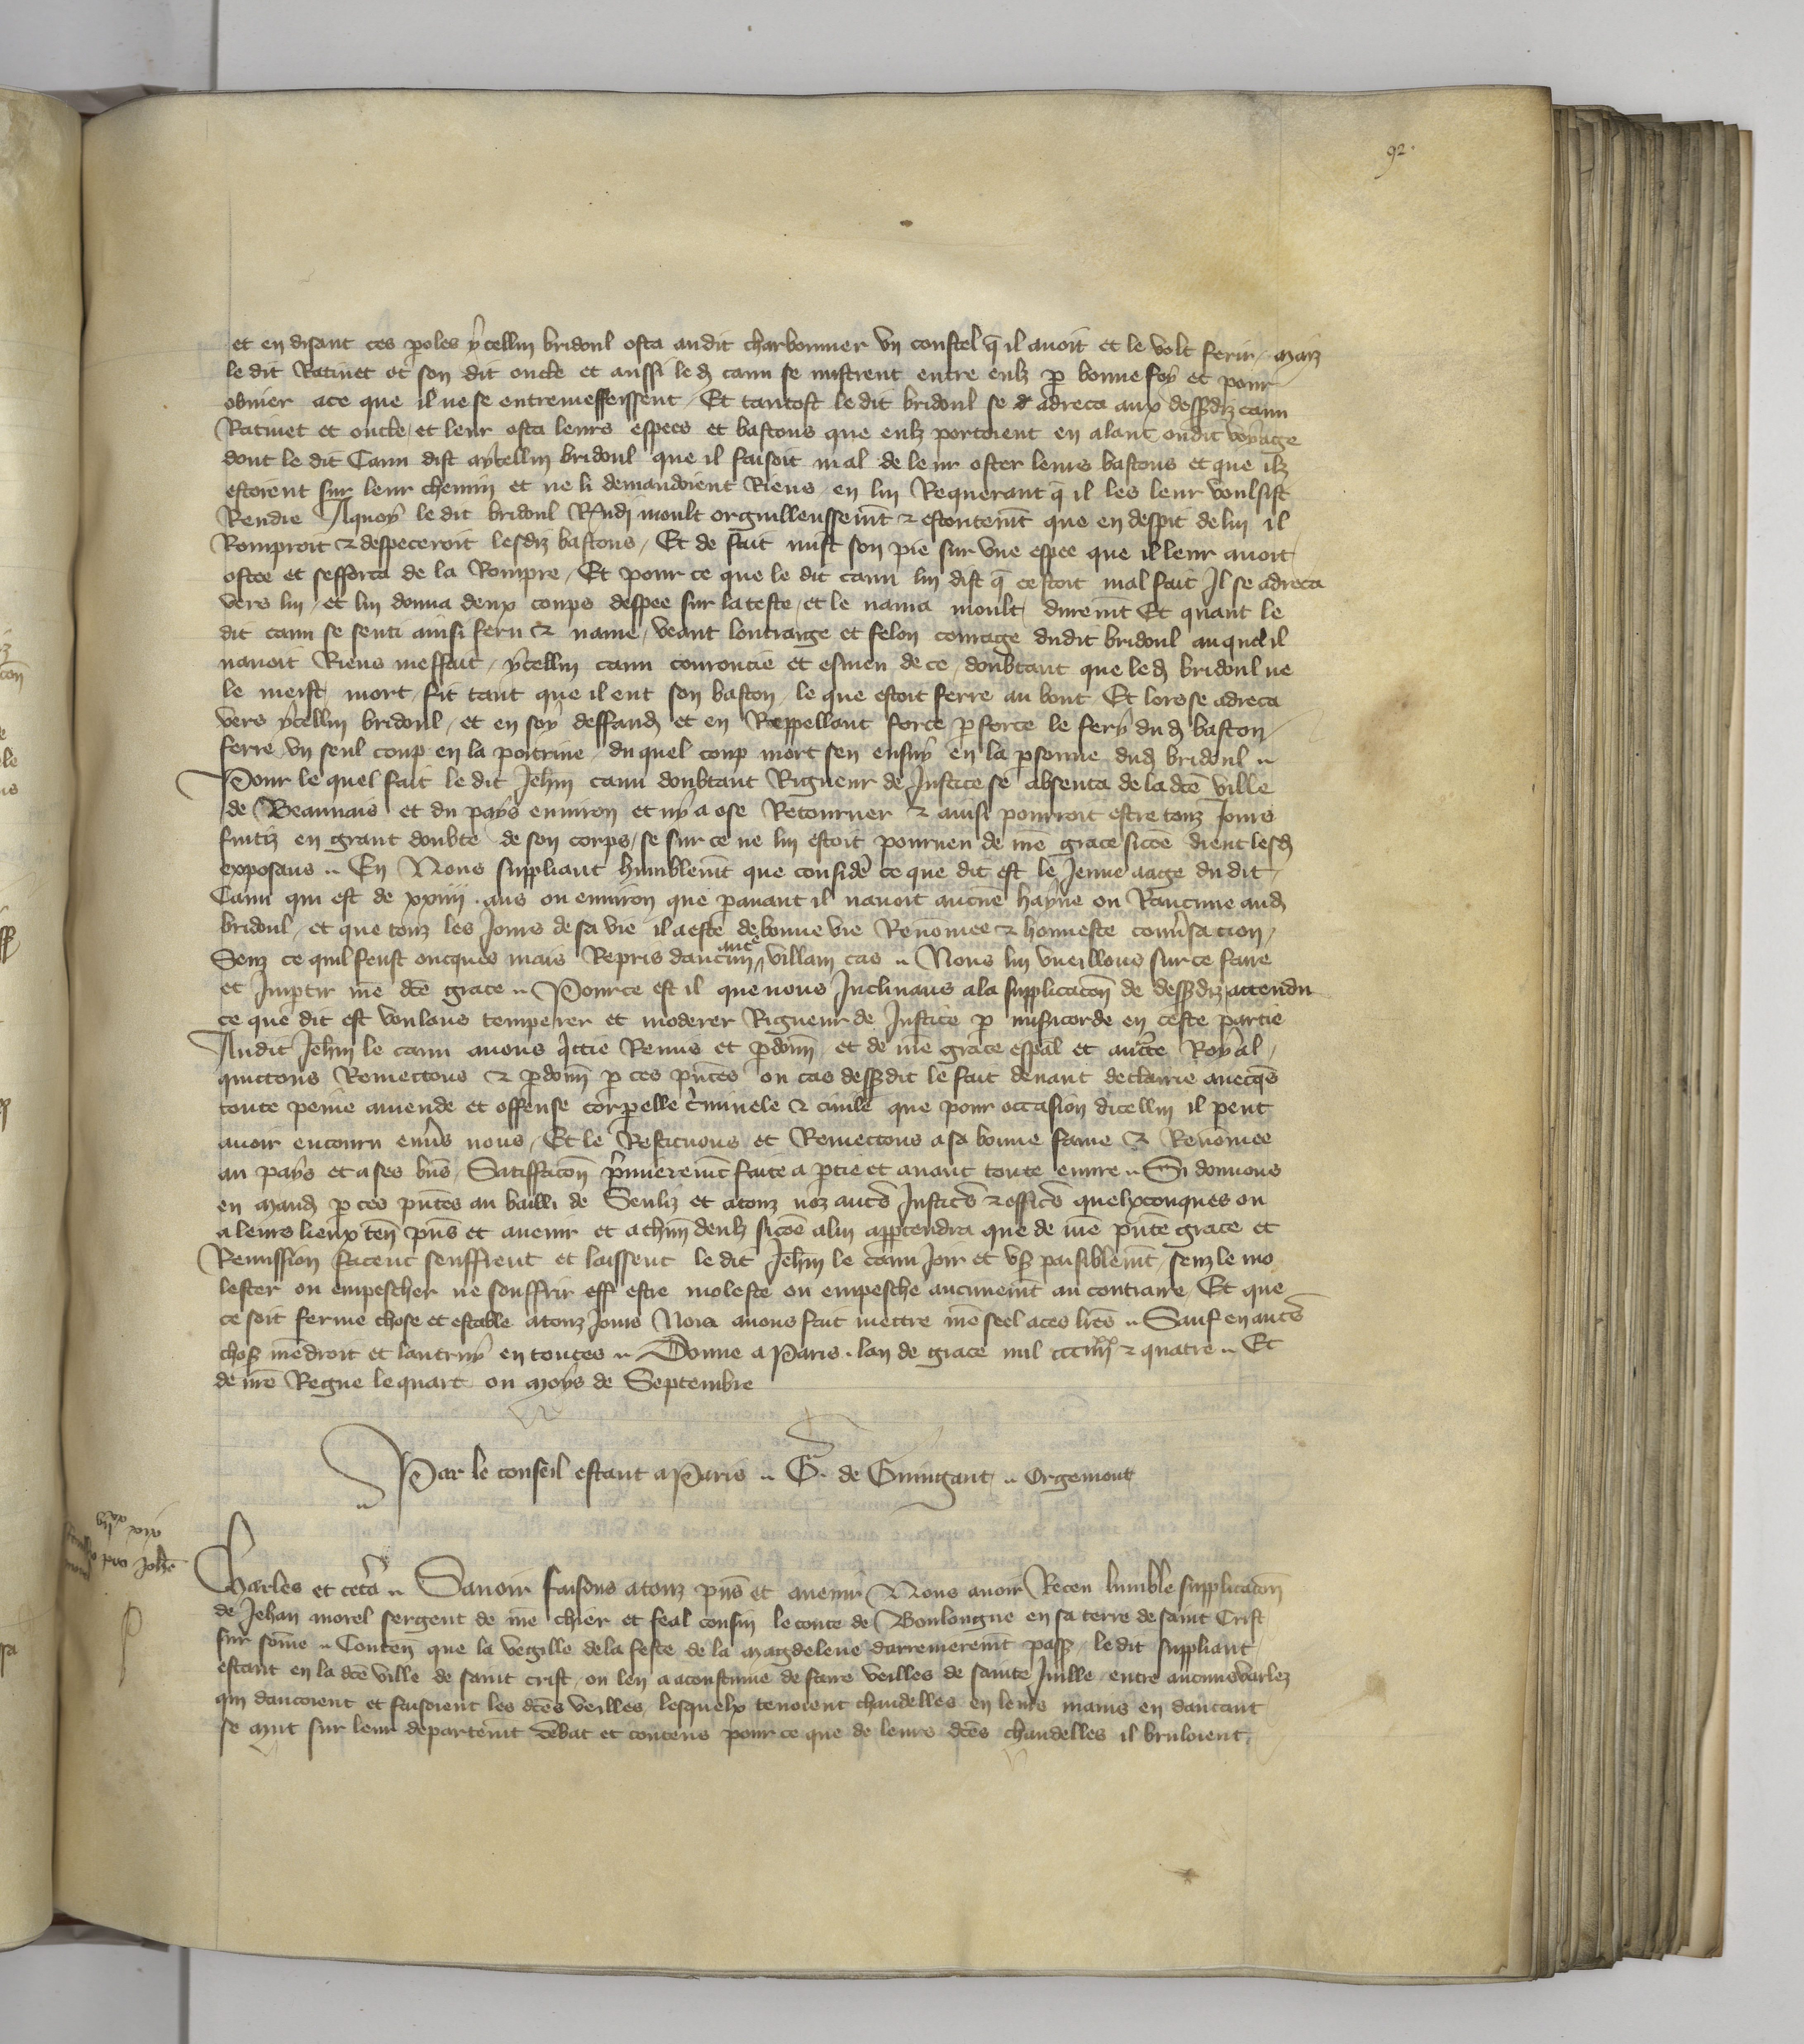 92.
et en disant ces p̱oles ycellui bridoul osta audit charbonnier vn coustel q̄ il auoit et le volt ferir / Maiz
le dit Ratinet et son dit oncle et aussi led̄ cann se mistrent entre eulz p̱ bonne foy et pour
obuier ace que il ne se entremeffeissent / Et tantost le dit bridoul se adreca aux dess̄diz cann
Ratinet et oncle / et leur osta leurs espees et bastons que eulz portoient en alant oudit voyage
dont le dit Cann dist aycellui bridoul que il faisoit mal de leur oster leurs bastons et que ilz
estoient sur leur chemin et ne li demandoient Riens / en lui Requerant q̄ il les leur voulsist
Rendre Aquoy le dit bridoul R̄ndi moult orguilleussem̄t & estoutem̄t que en despit de lui il
Romproit & despeceroit lesdiz bastons / Et de fait mist son pie sur vne espee que il leur auoit
ostee et sefforca de la Rompre / Et pour ce que le dit cann lui dist q̄ cestoit mal fait Il se adreca
vers lui / et lui donna deux coups despee sur la teste / et le naura moult durem̄t Et quant le
dit cann se senti ainsi feru & naure / veant loutraige et felon courage dudit bridoul auquel il
nauoit Riens meffait / ycellui cann courroucie et esmeu de ce / doubtant que led̄ bridoul ne
le meist mort / fit tant que il eut son baston / le que estoit ferre au bout / Et lors se adreca
vers ycellui bridoul / et en soy deffand̄ et en Reppellant force p̱ force le fery dud̄ baston /
ferre vn seul coup en la poitrine / du quel coup mort sen ensuy en la p̱sonne dud̄ bridoul ..
Pour le quel fait le dit Jeh̄n cann doubtant Rigueur de Justice se absenta de la dc̄e ville
de Beauuais et du pays enuiron et ny a ose Retourner & ainsi pourroit estre touz Jours
fuitiz en grant doubte de son corps / se sur ce ne lui estoit pourueu de nr̄e grace sicōe dient lesd̄
exposans .. En Nous suppliant humblem̄t que consider̄ ce que dit est le Jeune aage du dit
Cann qui est de xxiiii ans ou enuiron que p̱auant il nauoit aucūe hayne ou Rancune aud̄
bridoul / et que touz les Jours de sa vie il a este de bonne vie Renōmee & honneste conu̾sacion /
Senz ce quil feust oncques mais Repris daucun autre villain cas .. Nous lui vueillons sur ce faire
et Imp̱tir nr̄e dc̄e grace .. Pource est il que nous Inclinans ala supplicacōn de dess̄diz attendu
ce que dit est voulans temperer et moderer Rigueur de Justice p̱ misīcorde en ceste partie
Audit Jeh̄n le cann auons quittie Remis et p̱donn̄ / et de nr̄e grace esp̄al et auctc̄te Royal /
quittons Remectons & p̱donn̄ p̱ ces pn̄tes ou cas dess̄dit le fait deuant declairie auecq̄s
toute peine amende et offense corp̱elle c̾minele & ciuile que pour occasion dicellui il peut
auoir encouru enu̾s nous / Et le Restituons et Remectons a sa bonne fame & Renōmee
au pays et a ses bn̄s / Satiffacōn p̾mierem̄t faite a p̱tie et auant toute euure .. Si donnons
en mand̄ p̱ ces pn̄tes au bailli de Senliz et atouz noz aut̄s Justic̄s & offic̄s quelxconques ou
a leurs lieux ten̄ pn̄s et auenir et a chn̄ deulz sicōe alui app̱tendra que de nr̄e pn̄te grace et
Remission facent seuffrent et laissent le dit Jeh̄n le cann Joir et vs̄ paisiblem̄t / senz le mo
lester ou empescher ne souffrir estre moleste ou empesche aucunem̄t au contraire Et que
ce soit ferme chose et estable atouz Jours Nous auons fait mettre nr̄e seel aces lr̄es .. Sauf en aut̄s
chos̄ nr̄e droit et lautruy en toutes .. Donne a Paris . lan de grace mil ccciiii̽ˣˣ & quatre .. Et
de nr̄e Regne le quart ou Moys de Septembre
Par le conseil estant a Paris .. G. de Guingant .. Orgemont
vii̽ˣˣ xix
pro Joh̄e
Charles et cete̾a .. Sauoir faisons atouz pn̄s et auenir Nous auoir Receu lumble supplicacōn
de Jehan morel sergent de nr̄e chier et feal cousin le conte de Boulongne en sa terre de saint Crist
sur sōme .. Conten̄ que la vegille de la feste de la Magdelene darrenierem̄t pass̄ / le dit suppliant
estant en la dc̄e ville de saint crist / ou len a acoustume de faire veilles de sainte Juille / entre aucuns varlez
qui dancoient et faisoient les dc̄es veilles / lesquelx tenoient chandelles en leurs mains en dancant
se mut sur leur departem̄t debat et contens pour ce que de leurs dc̄es chandelles il bruloient